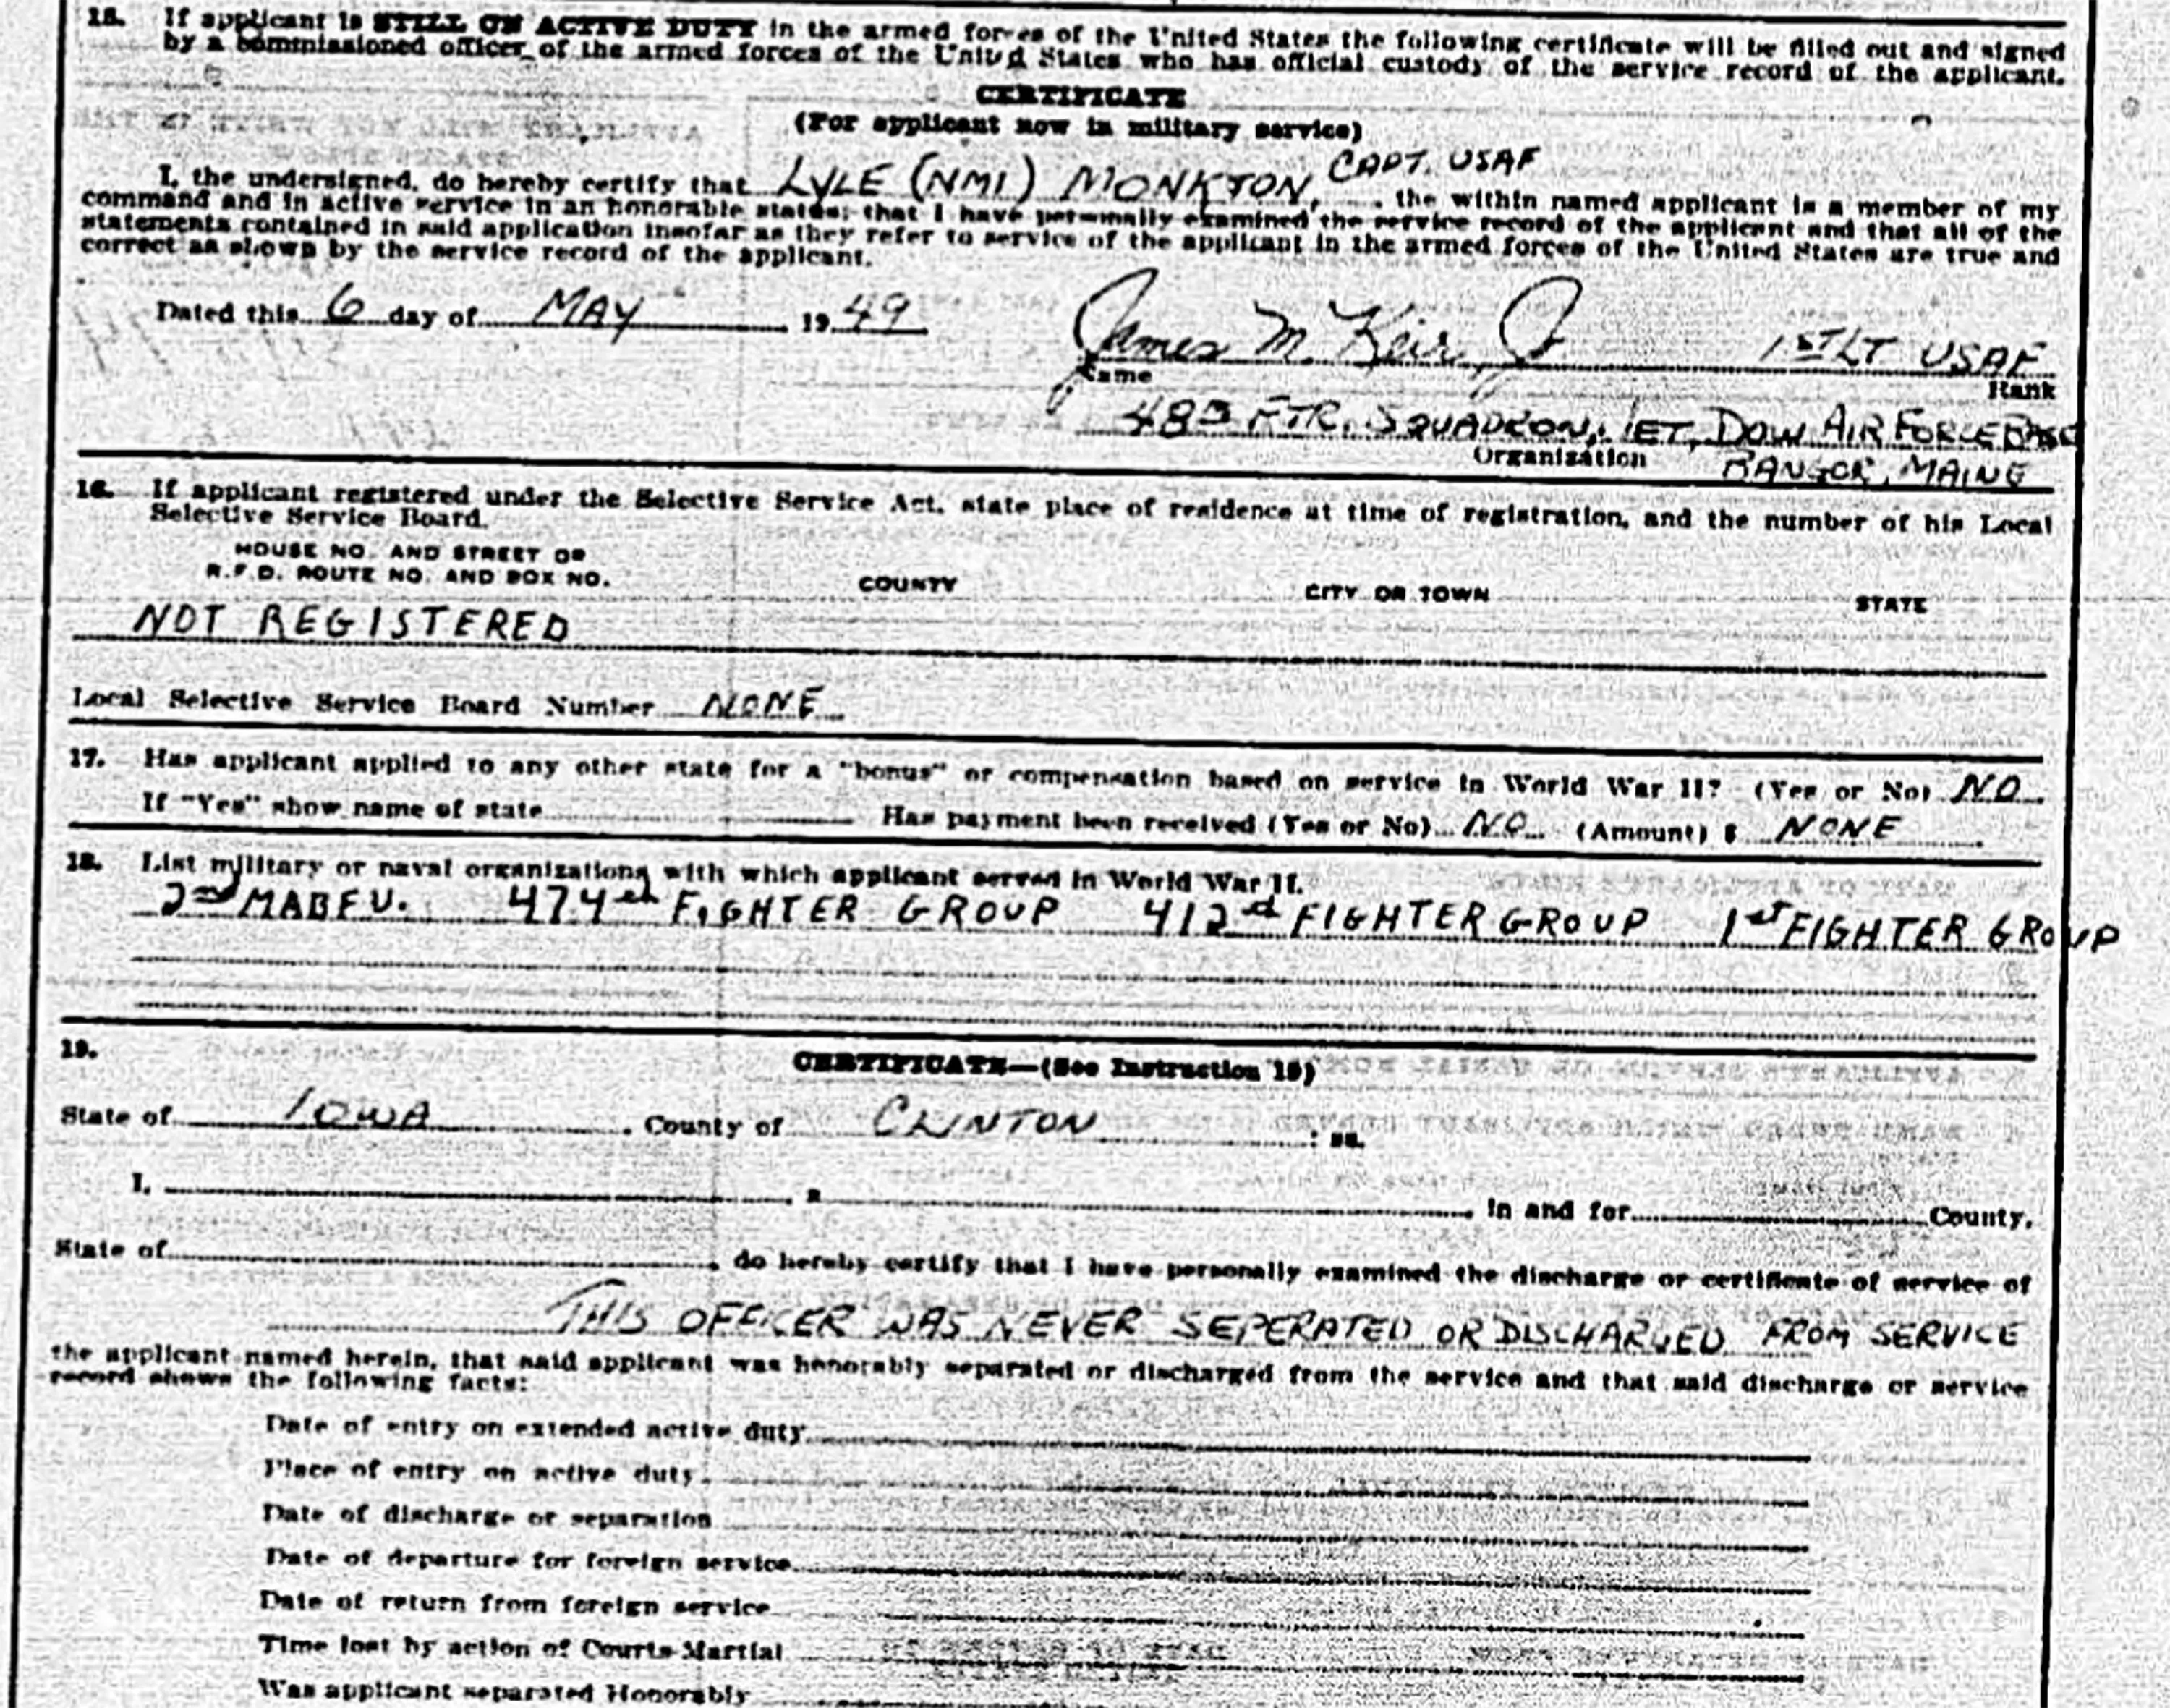 15. If applicant is STILL ON ACTIVE DUTY in the armed forces of the United States the following certificate will be filled out and signed
by a commissioned officer of the armed forces of the United States who has official custody of the service record of the applicant.
CERTIFICATE
(For applicant now in military service)
I, the undersigned, do hereby certify that LYLE (NMI) MONKTON, CAPT. USAF, the within named applicant is a member of my
command and in active service in an honorable status; that I have personally examined the service record of the applicant and that all of the
statements contained in said application insofar as they refer to service of the applicant in the armed forces of the United States are true and
correct as shown by the service record of the applicant.
Dated this 6 day of MAY 1949
James M. Keir, Jr 1ST LT USAF
Name Rank
FTR. SQUADRON, JET, DOW AIR FORCE BASE
Organization BANGOR, MAINE
16. If applicant registered under the Selective Service Act, state place of residence at time of registration, and the number of his Local
Selective Service Board.
HOUSE NO. AND STREET OR
R.F.D. ROUTE NO. AND BOX NO. COUNTY CITY OR TOWN STATE
NOT REGISTERED
Local Selective Service Board Number NONE
17. Has applicant applied to any other state for a "bonus" or compensation based on service in World War II? (Yes or No) NO
If "Yes" show name of state Has payment been received (Yes or No) NO (Amount) $ NONE
18. List military or naval organizations with which applicant served in World War II.
2nd MABFU. 474th FIGHTER GROUP 412nd FIGHTER GROUP 1st FIGHTER GROUP
19. CERTIFICATE—(See Instruction 15)
State of IOWA County of CLINTON : ss.
I, , a in and for County,
State of , do hereby certify that I have personally examined the discharge or certificate of service of
THIS OFFICER WAS NEVER SEPERATED OR DISCHARGED FROM SERVICE
the applicant named herein, that said applicant was honorably separated or discharged from the service and that said discharge or service
record shows the following facts:
Date of entry on extended active duty
Place of entry on active duty
Date of discharge or separation
Date of departure for foreign service
Date of return from foreign service
Time lost by action of Courts-Martial
Was applicant separated Honorably